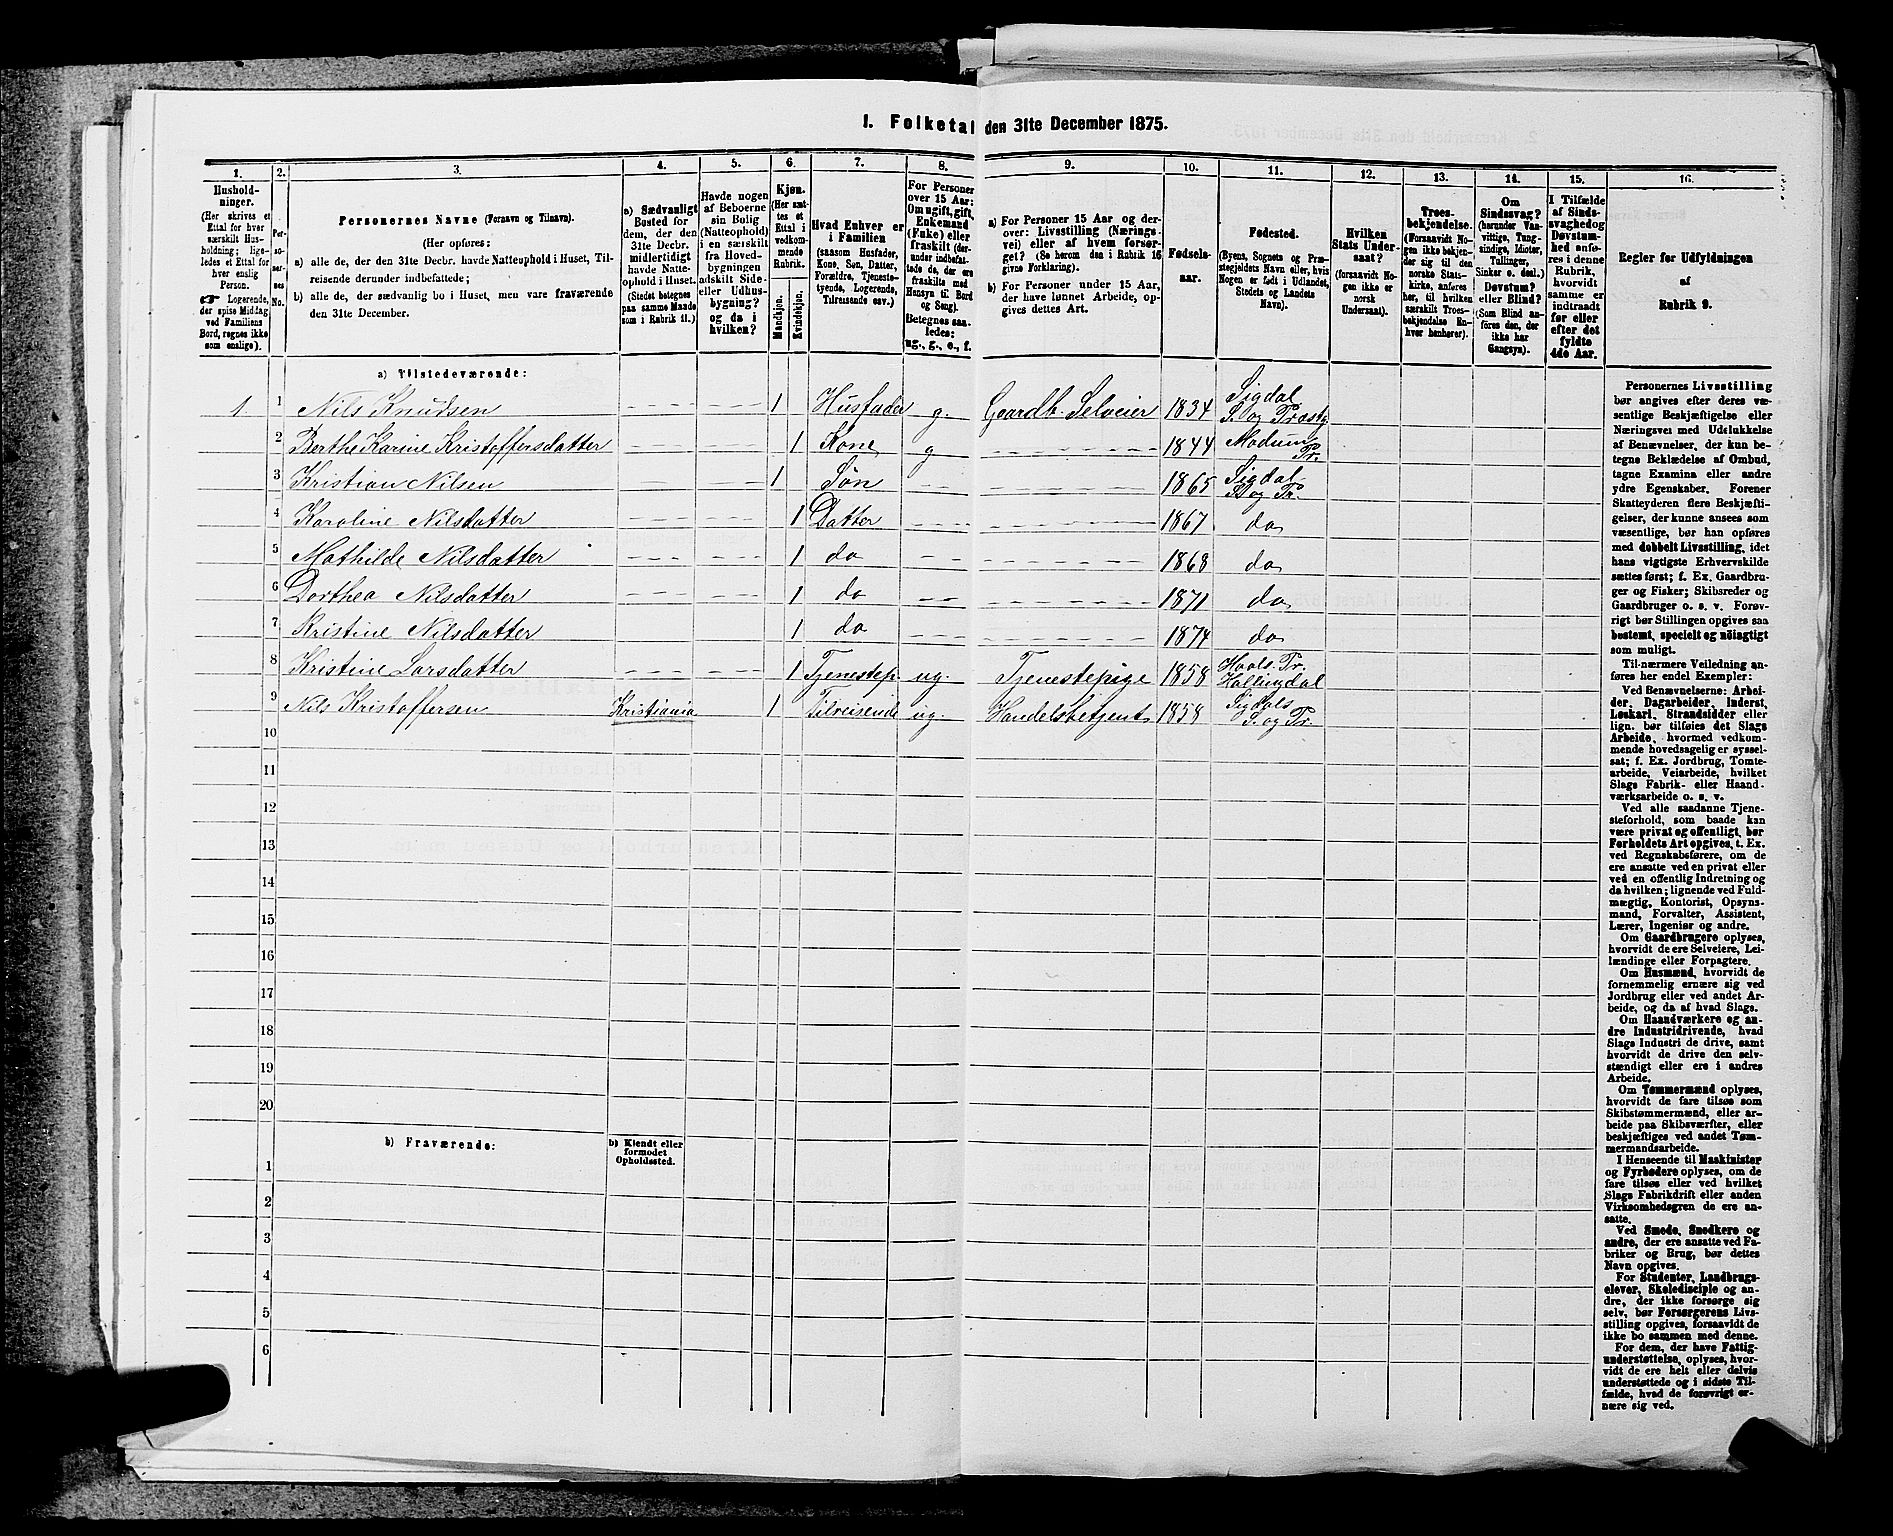 1. Folketal den 31te December 1875.
1. 2. 3. 4. 5. 6. 7. 8. 9. 10. 11. 12. 13. 14. 15. 16.
Hushold-
ninger.
(Her skrives et
Ettal for hver
særskilt Hus-
holdning; lige-
ledes et Ettal for
hver enslig
Person.
☛ Logerende,
der spise Middag
ved Familiens
Bord, regnes ikke
som enslige).
Per-
so-
ner-
nes
No.
Personernes Navne (Fornavn og Tilnavn).
(Her opføres:
a) alle de, der den 31te Decbr. havde Natteophold i Huset, Til-
reisende derunder indbefattede;
b) alle de, der sædvanlig bo i Huset, men vare fraværende
den 31te December.
a) Sædvanligt
Bosted for
dem, der den
31te Decbr.
midlertidigt
havde Natte-
ophold i Huset.
(Stedet betegnes
paa samme Maade
som i Rubrik 11.)
Havde nogen
af Beboerne
sin Bolig
(Natteophold)
i en særskilt
fra Hoved-
bygningen
adskilt Side-
eller Udhus-
bygning?
og da i
hvilken?
Kjøn.
(Her sæt-
tes et
Ettal i
vedkom-
mende
Rubrik.
Mandkjøn.
Kvindekjøn.
Hvad Enhver er
i Familien
(saasom Husfader,
Kone, Søn, Datter,
Forældre, Tjeneste-
tyende, Logerende,
Tilreisende osv.)
For Personer
over 15 Aar:
Om ugift, gift,
Enkemand
(Enke) eller
fraskilt (der-
under indbefat-
tede de, der ere
fraskilte med
Hensyn til Bord
og Seng).
Betegnes saa-
ledes:
ug., g., e., f.
a) For Personer 15 Aar og der-
over: Livsstilling (Nærings-
vei) eller af hvem forsør-
get? (Se herom den i Rubrik 16
givne Forklaring).
b) For Personer under 15 Aar,
der have lønnet Arbeide, op-
gives dettes Art.
Fødsels-
aar.
Fødested.
(Byens, Sognets og Præ-
stegjeldets Navn eller, hvis
Nogen er født i Udlandet,
Stedets og Landets
Navn).
Hvilken
Stats Under-
saat?
(forsaavidt No-
gen ikke er
norsk
Undersaat).
Troes-
bekjendelse.
(Forsaavidt No-
gen ikke bekjen-
der sig til den
norske Stats-
kirke, anføres
her, til hvilken
særskilt Troes-
bekjendelse En-
hver henhører).
Om
Sindssvag?
(herunder Van-
vittige, Tung-
sindige, Idioter,
Tullinger,
Sinker o. desl.)
Døvstum?
eller Blind?
(Som Blind an-
føres den, der
ikke har
Gangsyn).
I Tilfælde
af Sinds-
svaghed og
Døvstum-
hed anfø-
res i denne
Rubrik,
hvorvidt
samme er
indtraadt
før eller
efter det
fyldte
4de Aar.
Regler for Udfyldningen
af
Rubrik 9.
a) Tilstedeværende:
1 1 Nils Knudsen 1 Husfader g. Gaardb. Selveier 1834 Sigdal
S. og Præstg
2 Berthe Karine Kristoffersdatter 1 Kone g 1844 Modum
Pr.
3 Kristian Nilsen 1 Søn 1865 Sigdal
S. og Pr.
4 Karoline Nilsdatter 1 Datter 1867 do
5 Mathilde Nilsdatter 1 do 1868 do
6 Dorthea Nilsdatter 1 do 1871 do
7 Kristine Nilsdatter 1 do 1874 do
8 Kristine Larsdatter 1 Tjenestep. ug. Tjenestepige 1858 Haals Pr.
Hallingdal
9 Nils Kristoffersen Kristiania 1 Tilreisende ug. Handelsbetjent 1858 Sigdals
S. og Pr.
10
11
12
13
14
15
16
17
18
19
20
b) Fraværende:
b) Kjendt eller
formodet
Opholdssted.
1
2
3
4
5
6
Personernes Livsstilling
bør angives efter deres væ-
sentlige Beskjæftigelse eller
Næringsvei med Udelukkelse
af Benævnelser, der kun be-
tegne Beklædelse af Ombud,
tagne Examina eller andre
ydre Egenskaber. Forener
Skatteyderen flere Beskjæfti-
gelser, der kunne ansees som
væsentlige, bør han opføres
med dobbelt Livsstilling, idet
hans vigtigste Erhvervskilde
sættes først; f. Ex. Gaardbru-
ger og Fisker; Skibsreder og
Gaardbruger o. s. v. Forøv-
rigt bør Stillingen opgives saa
bestemt, specielt og nöiagtigt
som muligt.
Til nærmere Veiledning an-
føres her endel Exempler:
Ved Benævnelserne: Arbei-
der, Dagarbeider, Inderst,
Løskarl, Strandsidder eller
lign. bør tilføies det Slags
Arbeide, hvormed vedkom-
mende hovedsagelig er syssel-
sat; f. Ex. Jordbrug, Tomte-
arbeide, Veiarbeide, hvilket
Slags Fabrik- eller Haand-
værksarbeide o. s. v.
Ved alle saadanne Tjene-
steforhold, som baade kan
være privat og offentligt, bør
Forholdets Art opgives, t. Ex.
ved Regnskabsførere, om de
ere ansatte ved en privat eller
ved en offentlig Indretning og
da hvilken; lignende ved Fuld-
mægtig, Kontorist, Opsyns-
mand, Forvalter, Assistent,
Lærer, Ingeniør og andre.
Om Gaardbrugere oplyses,
hvorvidt de ere Selveiere, Lei-
lændinge eller Forpagtere.
Om Husmænd, hvorvidt de
fornemmelig ernære sig ved
Jordbrug eller ved andet Ar-
beide, og da af hvad Slags.
Om Haandværkere og an-
dre Industridrivende, hvad
Slags Industri de drive, samt
hvorvidt de drive den selv-
stændigt eller ere i andres
Arbeide.
Om Tømmermænd oplyses,
hvorvidt de fare tilsøs som
Skibstømmermænd, eller ar-
beide paa Skibsværfter, eller
beskjæftiges ved andet Tøm-
mermandsarbeide.
I Henseende til Maskinister
og Fyrbødere oplyses, om de
fare tilsøs eller ved hvilket
Slags Fabrikdrift eller anden
Virksomhedsgren de ere an-
satte.
Ved Smede, Snedkere og
andre, der ere ansatte ved Fa-
briker og Brug, bør dettes
Navn opgives.
For Studenter, Landbrugs-
elever, Skoledisciple og an-
dre, der ikke forsørge sig
selv, bør Forsørgerens Livs-
stilling opgives, forsaavidt de
ikke bo sammen med denne.
For dem, der have Fattig-
understøttelse, oplyses, hvor-
vidt de ere helt eller delvis
understøttede og i sidste Til-
fælde, hvad de forøvrigt er-
nære sig ved.